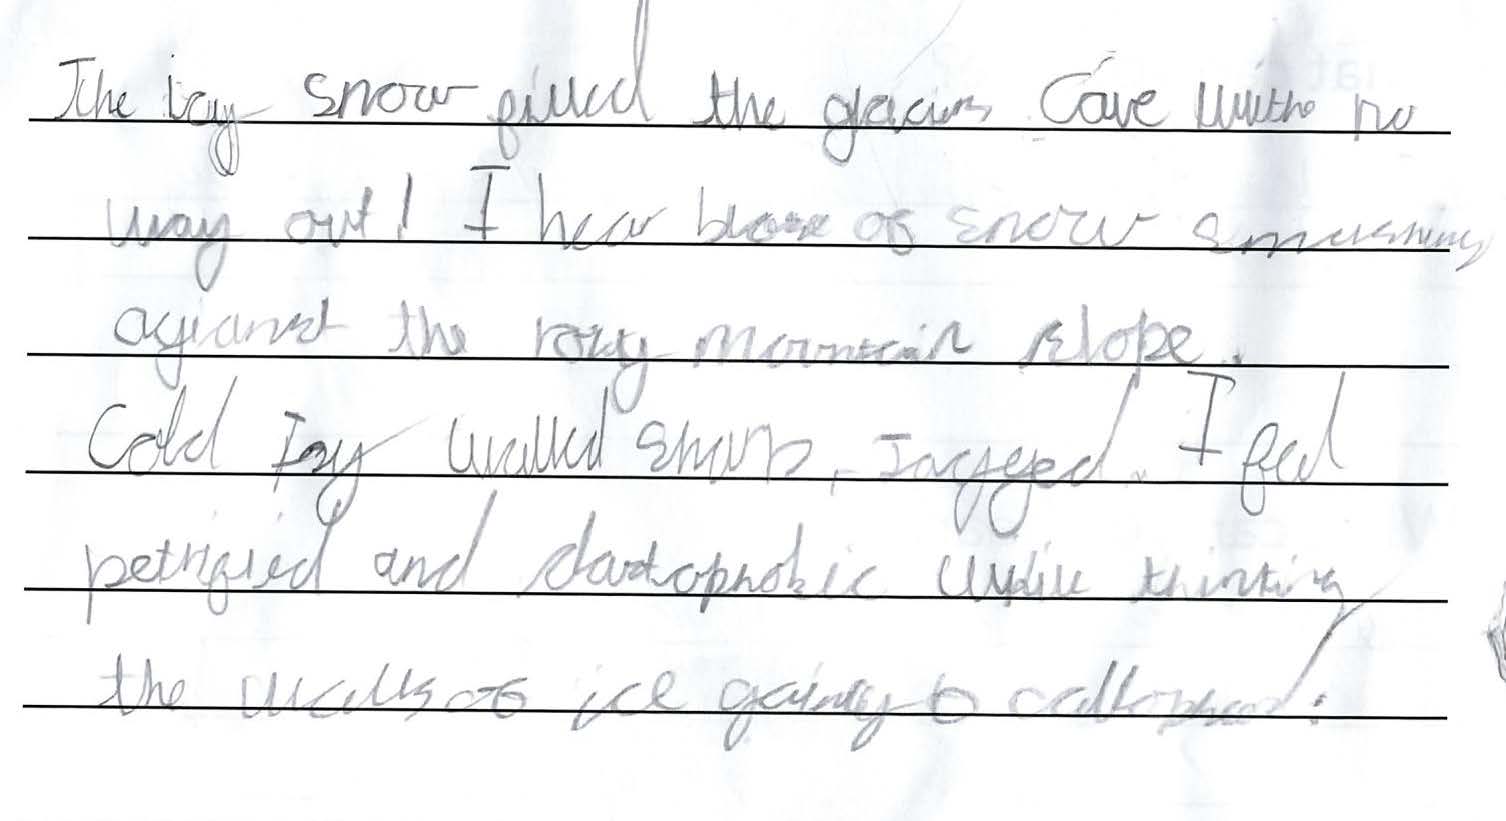 The icy snow filled the glaciers Cave with no
way out! I hear of snow smushing
agianst the roky mountain slope.
Cold Icy walled sharp, Jagged. I feel
petrified and clastophobic while thinking
the walls of ice going to